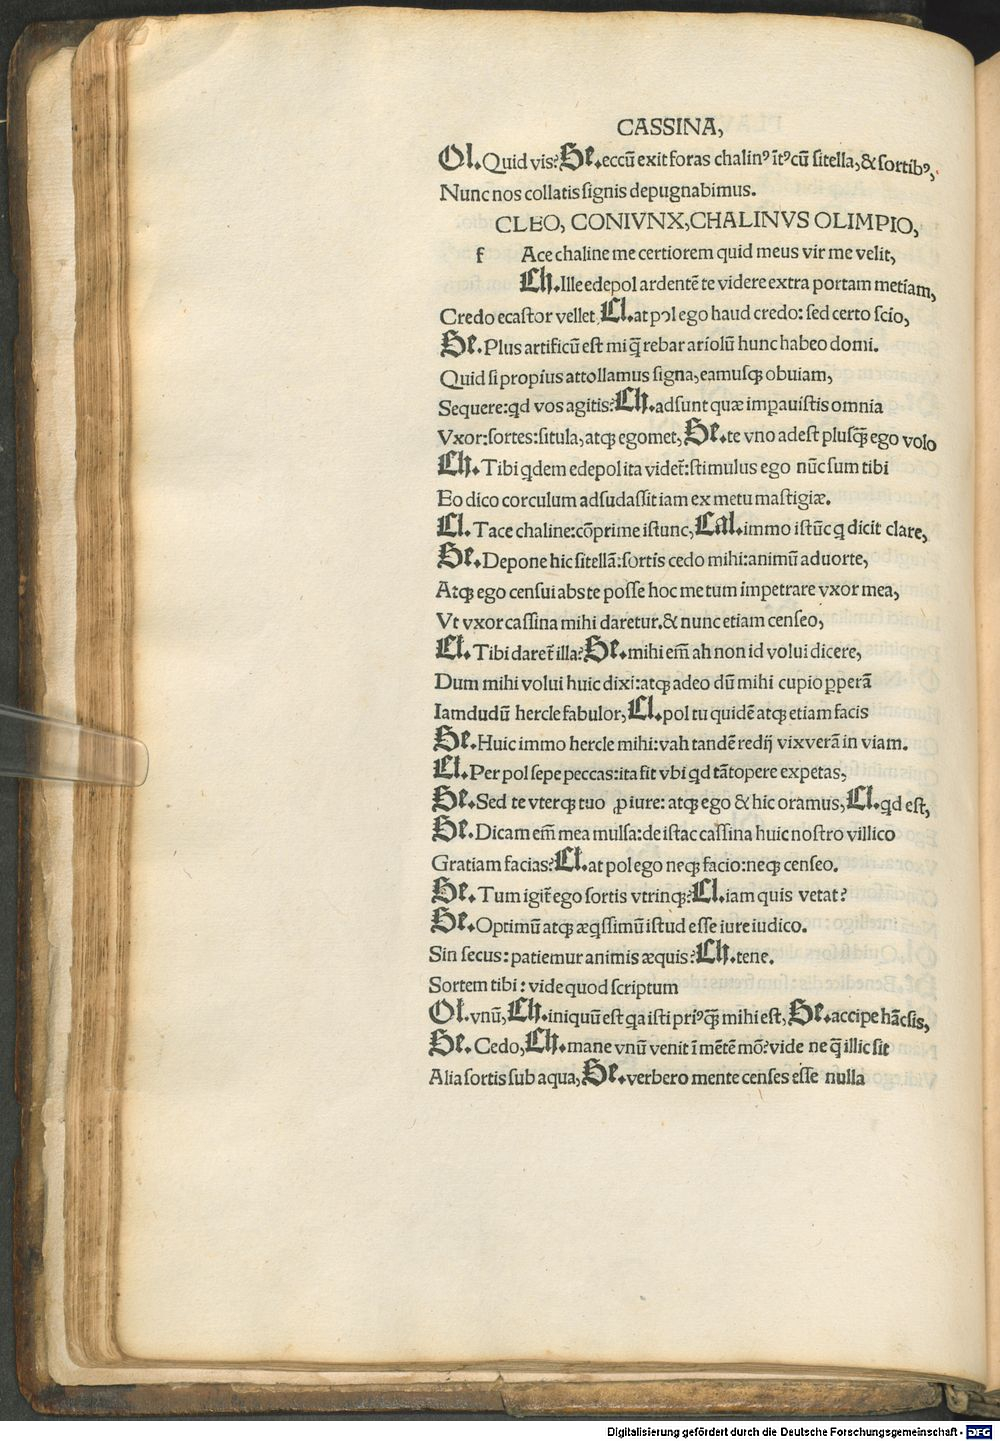 CASSINA,
Ol. Quid vis? Se. eccū exit foras chalinꝰ ītꝰ cū sitella, & sortibꝰ,
Nunc nos collatis signis depugnabimus.
CLEO, CONIVNX, CHALINVS OLIMPIO,
f Ace chaline me certiorem quid meus vir me velit,
Ch. Ille edepol ardentē te videre extra portam metiam,
Credo ecastor vellet. Cl. at pol ego haud credo: sed certo scio,
Se. Plus artificū est mi q̄ rebar ariolū hunc habeo domi.
Quid si propius attollamus signa, eamusq; obuiam,
Sequere: qd vos agitis? Ch. adsunt quæ imꝑauistis omnia
Vxor: sortes: situla, atq; egomet, Se. te vno adest plusq̄ ego volo
Ch. Tibi qdem edepol ita videt̄: stimulus ego nūc sum tibi
Eo dico corculum adsudassit iam ex metu mastigiæ.
Cl. Tace chaline: cōprime istunc, Cal. immo istūc q dicit clare,
Se. Depone hic sitellā: sortis cedo mihi: animū aduorte,
Atq; ego censui abs te posse hoc me tum impetrare vxor mea,
Vt vxor cassina mihi daretur. & nunc etiam censeo,
Cl. Tibi daret̄ illa? Se. mihi em̄ ah non id volui dicere,
Dum mihi volui huic dixi: atq; adeo dū mihi cupio ꝑperā
Iamdudū hercle fabulor, Cl. pol tu quidē atq; etiam facis
Se. Huic immo hercle mihi: vah tandē redij vix verā in viam.
Cl. Per pol sepe peccas: ita fit vbi qd tātopere expetas,
Se. Sed te vterq; tuo ꝓ iure: atq; ego & hic oramus, Cl. qd est,
Se. Dicam em̄ mea mulsa: de istac cassina huic nostro villico
Gratiam facias? Cl. at pol ego neq; facio: neq; censeo.
Se. Tum igit̄ ego sortis vtrinq;? Cl. iam quis vetat?
Se. Optimū atq; æqssimū istud esse iure iudico.
Sin secus: patiemur animis æquis? Ch. tene.
Sortem tibi: vide quod scriptum
Ol. vnū, Ch. iniquū est qa isti priꝰ q̄ mihi est, Se. accipe hāc sis,
Se. Cedo, Ch. mane vnū venit ī mētē mō? vide ne q̄ illic sit
Alia sortis sub aqua, Se. verbero mente censes esse nulla
Digitalisierung gefördert durch die Deutsche Forschungsgemeinschaft - DFG